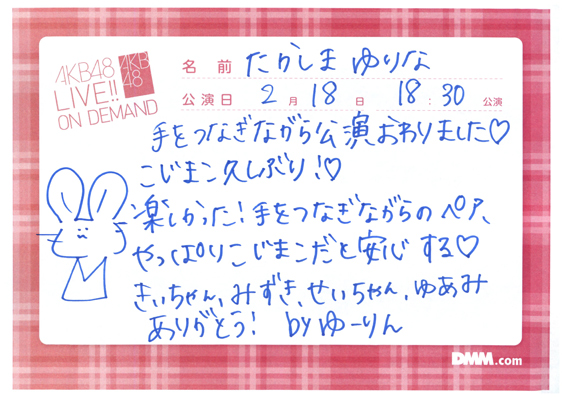 AKB48
LIVE!!
ON DEMAND
AKB
48
名 前 たかしま ゆりな
公演日 2 月 18 日 18:30 公演
手をつなぎながら公演おわりました♡
こじまこ久しぶり!♡
楽しかった!手をつなぎながらのペア、
やっぱりこじまこだと安心する♡
きぃちゃん、みずき、せいちゃん、ゆあみ
ありがとう! byゆーりん
DMM.com